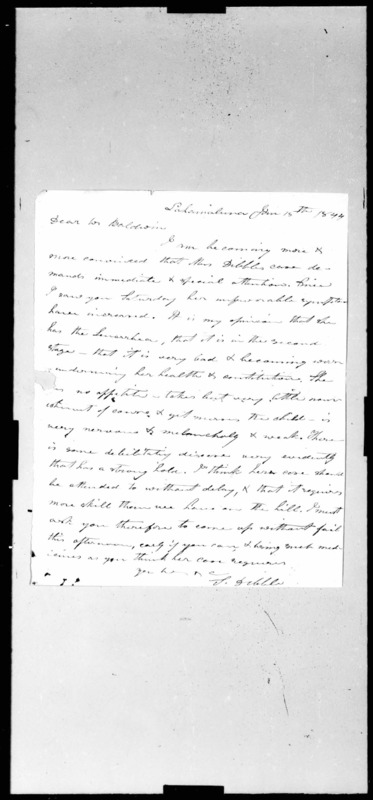 Lahainaluna Jan 15th 1844
Dear Dr Baldwin
I am becoming more &
more convinced that Mrs Dibbles case de-
mands immediate & special attention. Since
I saw you Saturday her unfavorable symptoms
have increased. It is my opinion that she
has the Leucorrhea, that it is in the second
stage - that it is very bad & becoming worse
undermining her health & constitution. She
has no appetite - takes but very little nour-
ishment of course & yet nurses the child - is
very nervous & melancholy & weak. There
is some debilitating disease very evidently
that has a strong hold. I think her case should
be attended to without delay, & that it requires
more skill than we have on the hill. I must
ask you therefore to come up without fail
this afternoon, early if you can, & bring such med-
icines as you think her case requires.
S. Dibble